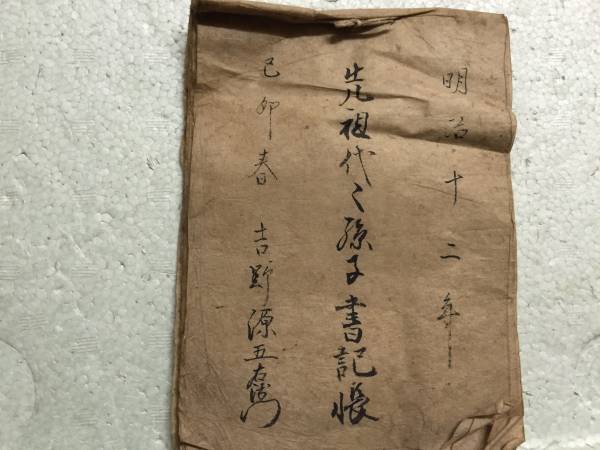 明治十二年
先祖代々孫子書記帳
己卯春 吉野源五右衛門